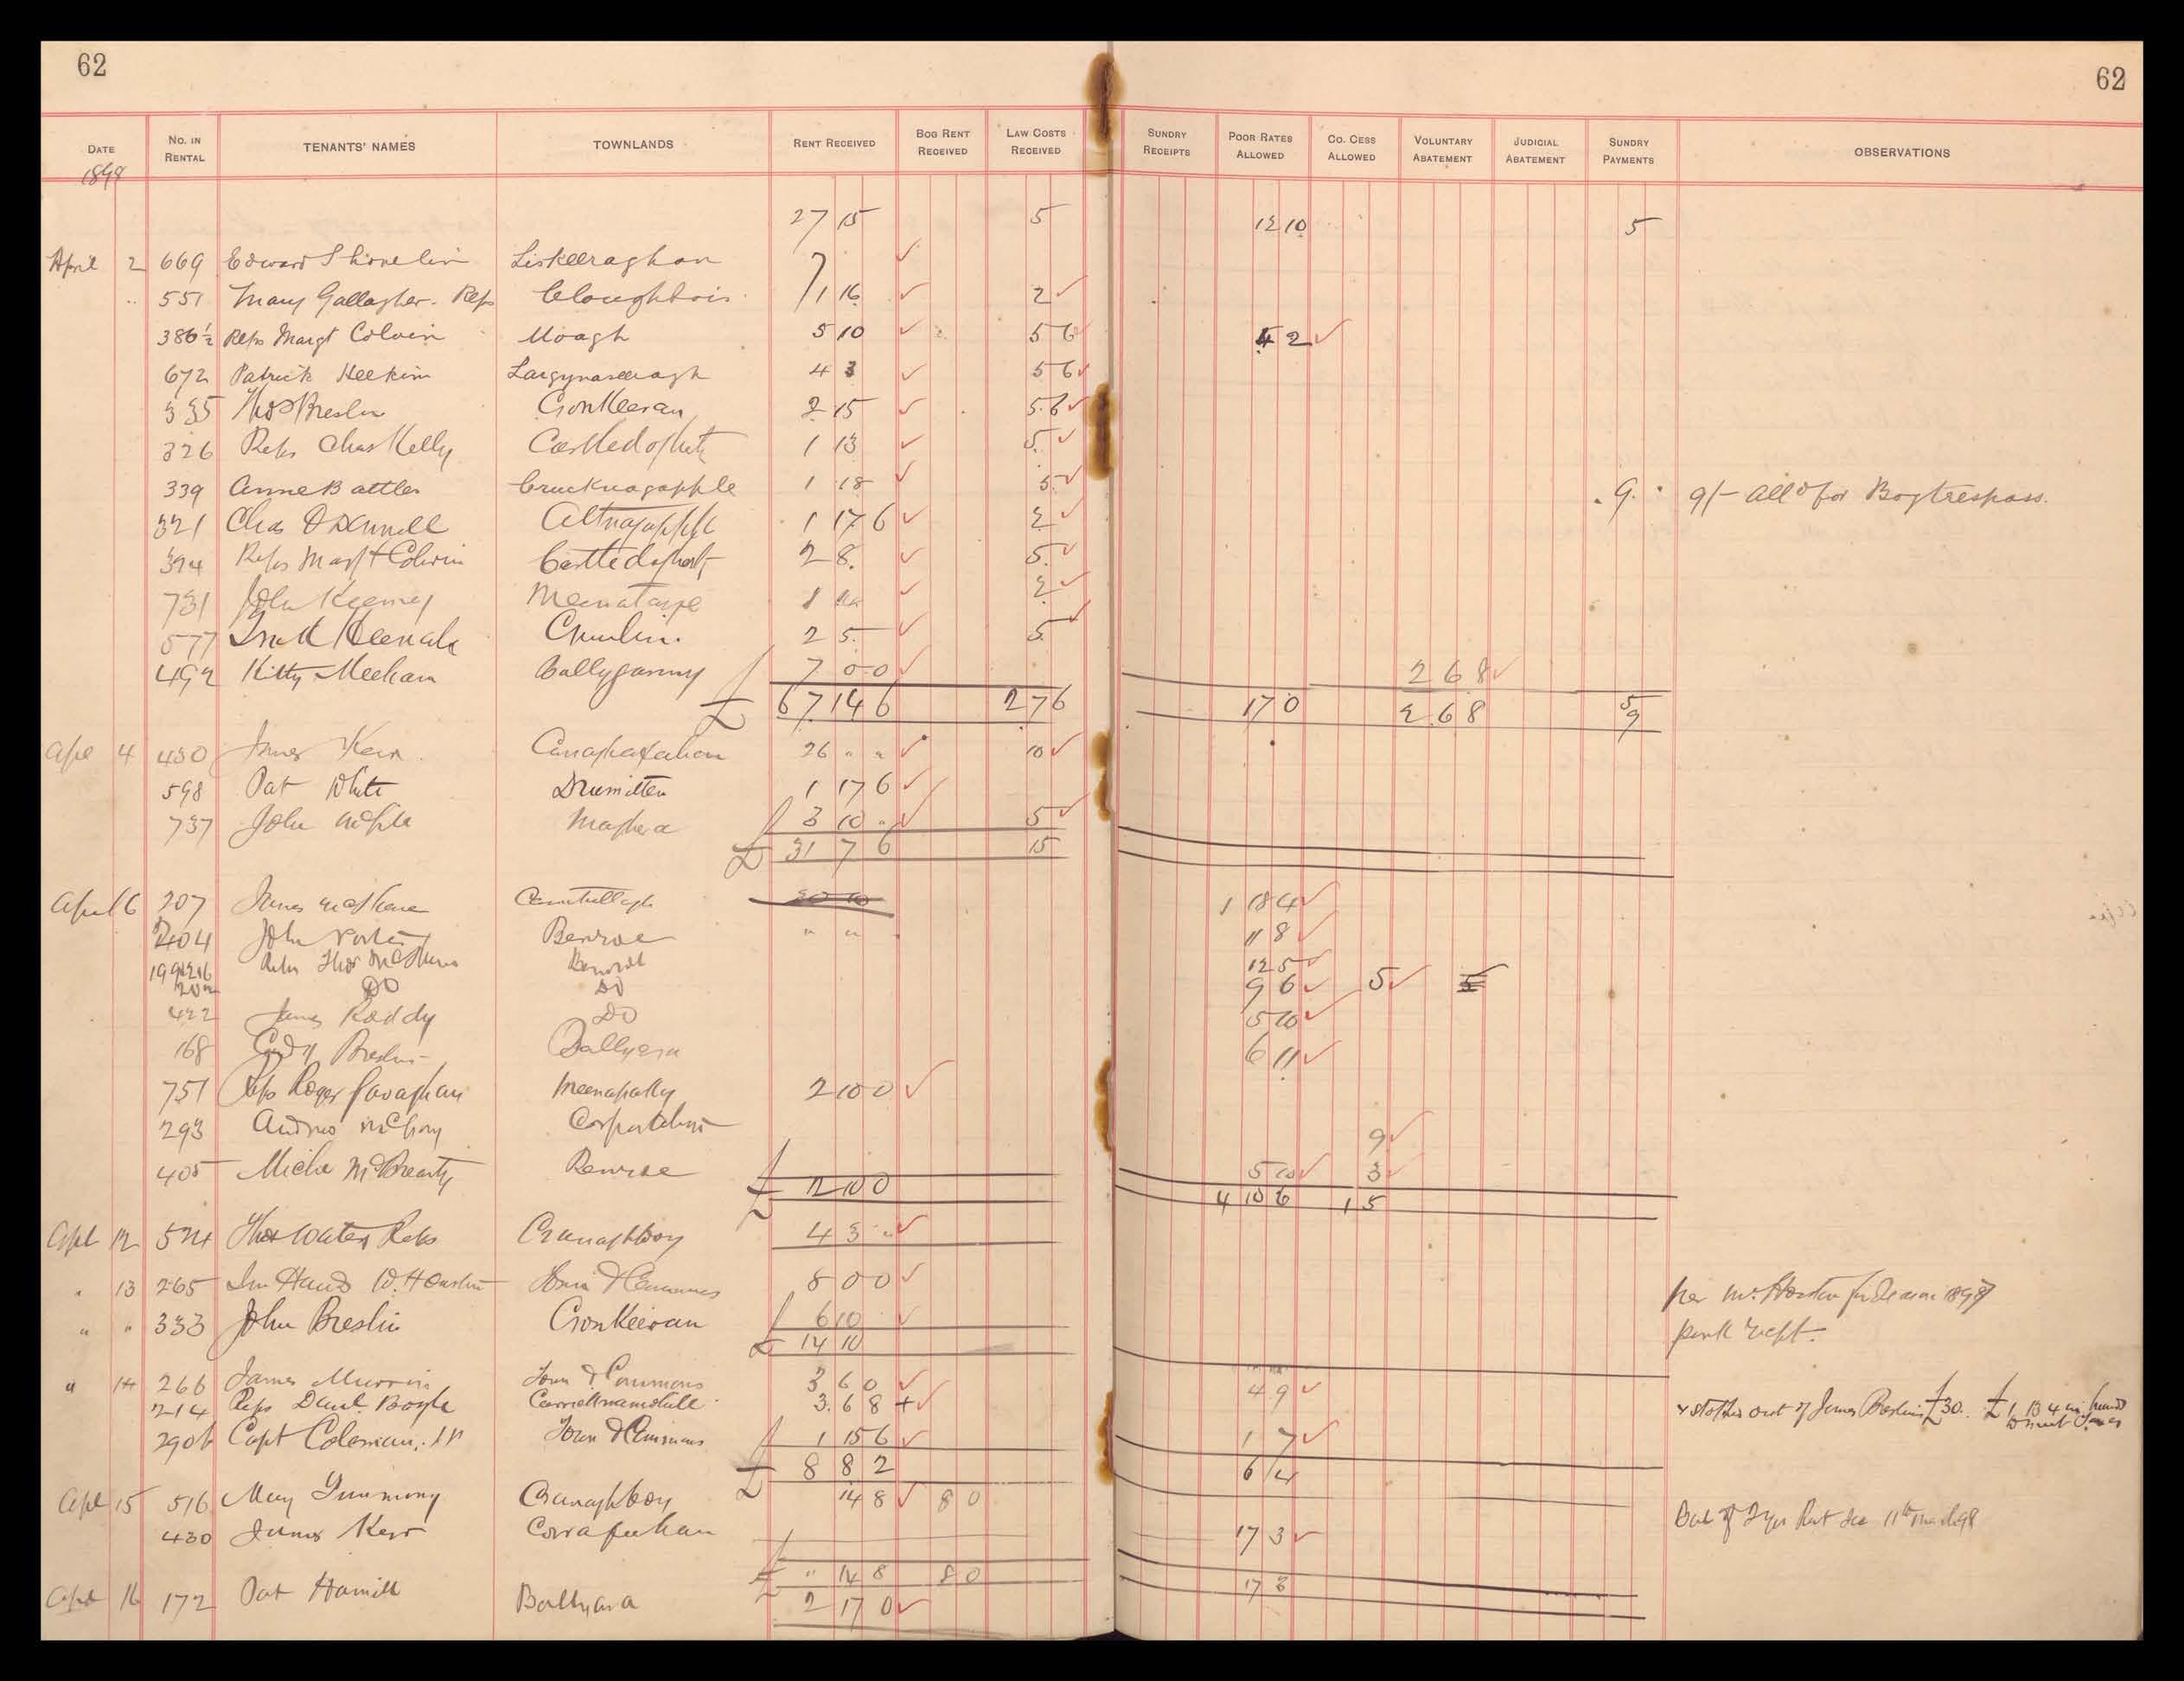 62 62
DATE NO. IN RENTAL TENANTS' NAMES TOWNLANDS RENT RECEIVED BOG RENT RECEIVED LAW COSTS RECEIVED SUNDRY RECEIPTS POOR RATES ALLOWED CO. CESS ALLOWED VOLUNTARY ABATEMENT JUDICIAL ABATEMENT SUNDRY PAYMENTS OBSERVATIONS
1898
27 15 5 12 10 5
April 2 669 Edward Shovelin Liskeeraghan 7
551 Mary Gallagher. Reps Cloughbois 1 16 2
386½ Reps Margt Colvin Meagh 5 10 5 6 4 2
672 Patrick Heekin Largynaseeragh 4 3 5 6
335 Thos Breslin Cronkeeran 2 15 5.6
326 Reps Chas Kelly Castledoghert 1 13 5.
339 Anne Battles Crucknagapple 1 18 5 . 9. 9/- alld for Bog trespass.
321 Chas O'Donnell Altnagapple 1 17 6 2
394 Reps Margt Colvin Castledoghert 2 8. 5.
731 John Keeney Meenataggle 1 2
577 Heenala 2 5. 5
492 Kitty Meehan Ballyganny 7 0-0 2 6 8
£ 67 14 6 2 7 6 17 0 2 6 8 5 9
Apl 4 430 James Kerr 26 " " 10
598 Pat White Drumitten 1 17 6
737 John McHale Maghera 3 10 " 5
£ 31 7 6 15
April 6 207 James McShane 1 18 4
404 John Porter Benroe " " 11 8
Reps Thos McShane Benroe 12 5
202 DO DO 9 6 5
422 James Roddy DO 5 10
168 Condy Breslin Ballyara 6 11
751 Reps Roger Gavaghan Meenapolly 2 10 0
293 Andrew 9
405 Michl McBrearty Benroe 5 10 3
£ 2 10 0 4 10 6 1 5
Apl 12 524 Thos Waters Reps Cranaghboy 4 3 "
" 13 265 In Hand W. Houston Town & Commons 8 0 0 per Mr. Houston
" " 333 John Breslin Cronkeeran 6 10
£ 14 10
" 14 266 James Murrin Town & Commons 3 6 0 4 9
214 Reps Danl. Boyle 3. 6 8 + stopped out of James Breslins £30. £1 13 4 in hand
290b Capt Coleman. Town & Commons 1 15 6 1 7
£ 8 8 2 6 4
Apl 15 516 Mary Gummony Cranaghboy 14 8 8 0 Bal of Rent See 11th March 98
430 James Kerr Corrafeehan 17 3
£ " 14 8 8 0 17 3
Apl 16 172 Pat Hamill Ballyara 2 17 0